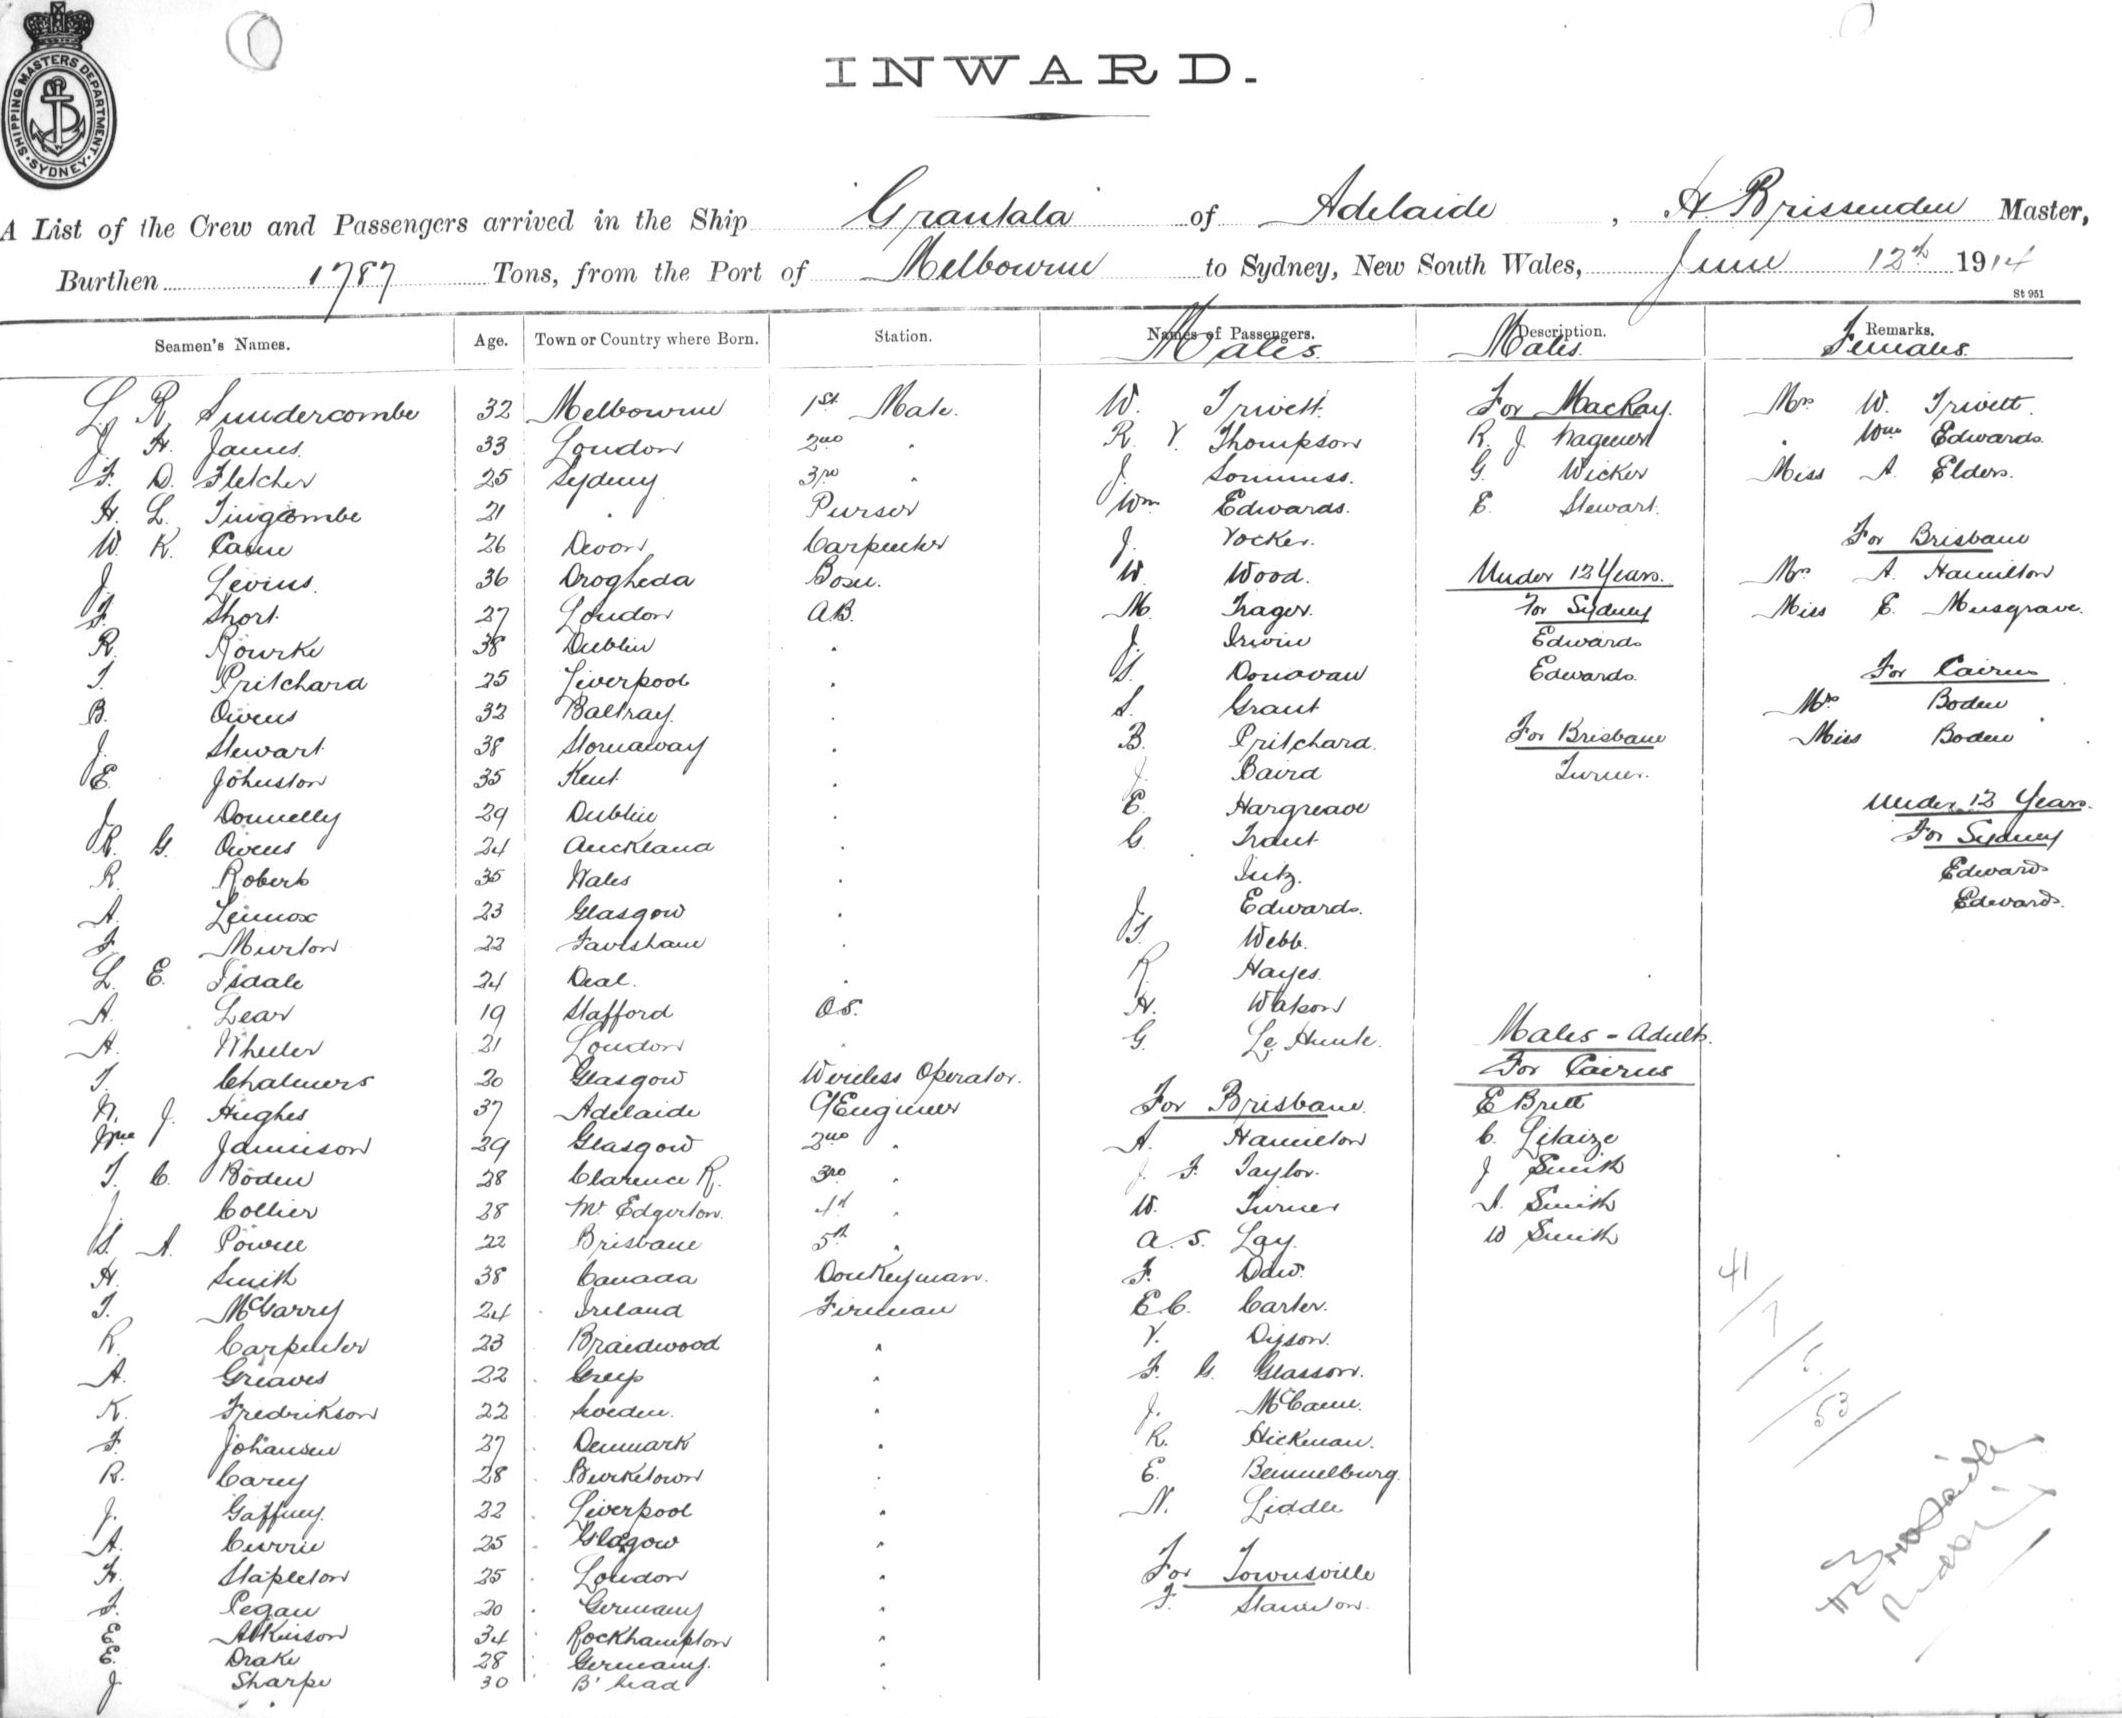 SHIPPING MASTERS DEPARTMENT · SYDNEY ·
INWARD.
A List of the Crew and Passengers arrived in the Ship Grantala of Adelaide, H Brissenden Master,
Burthen 1787 Tons, from the Port of Melbourne to Sydney, New South Wales, June 12th 1914
St 951
Seamen's Names. Age. Town or Country where Born. Station. Names of Passengers. Description. Remarks.
Males. Males. Females.
L. R. Sundercombe 32 Melbourne 1st Mate. W. Trivett. For Mackay. Mrs W. Trivett.
J. H. James. 33 London 2nd " R. V. Thompson R. J. " Wm Edwards.
F. D. Fletcher 25 Sydney 3rd " J. G. Wicker Miss A. Elders.
H. L. Tingcombe 21 " Purser Wm Edwards. E. Stewart.
W. K. Caine 26 Devon Carpenter J. Vocker. For Brisbane
J. Levins. 36 Drogheda Bosn. W. Wood. Under 12 Years. Mrs A. Hamilton
F. Short. 27 London A.B. M. Trager. For Sydney Miss E. Musgrave.
R. Rourke 38 Dublin " J. Irwin Edwards
T. Pritchard 25 Liverpool " S. Donovan Edwards. For Cairns
B. Owens 32 Baltray. " S. Grant Mrs Boden
J. Stewart 38 Stornaway " B. Pritchard. For Brisbane Miss Boden
E. Johnston 35 Kent. " J. Baird Turner.
J. Donnelly 29 Dublin " E. Hargreave Under 12 Years.
R. G. Owens 24 Auckland " C. Trant For Sydney
R. Roberts 35 Wales " Edwards
A. Lennox 23 Glasgow " J. Edwards. Edwards.
F. Murton 22 Faversham " T. Webb.
L. E. Tsdale 24 Deal. " R. Hayes.
A. Lear 19 Stafford O.S. H. Watson
A. Wheeler 21 London " G. Le Hunte. Males - Adults.
T. Chalmers 20 Glasgow Wireless Operator. For Cairns
N. J. Hughes 37 Adelaide C/Engineer For Brisbane. E Britt
Wm Jamieson 29 Glasgow 2nd " A. Hamilton C.
T. C. Boden 28 Clarence R. 3rd " J. F. Taylor. J Smith
J. Collier 28 Mt Edgerton. 4th " W. Turner A. Smith
S. A. Powell 22 Brisbane 5th " A. S. Lay. W Smith
H. Smith 38 Canada Donkeyman. F. Daw.
T. McGarry 24 Ireland Fireman E.C. Carter. 41
R. Carpenter 23 Braidwood " V. Dyson. 7
A. Greaves 22 " F. G. Glasson. 5
K. Fredrikson 22 Sweden. " J. McCann. 53
F. Johansen 27 Denmark " R. Hickman.
R. Carey 28 Burketown " E. Bemmelburg.
J. Gaffney. 22 Liverpool " N. Liddle
A. Currie 25 Glasgow "
H. Stapleton 25 London " For Townsville
F. Pegan 20 Germany " F. Staunton.
E. Atkinson 34 Rockhampton "
E. Drake 28 Germany. "
J. Sharpe 30 B'head "